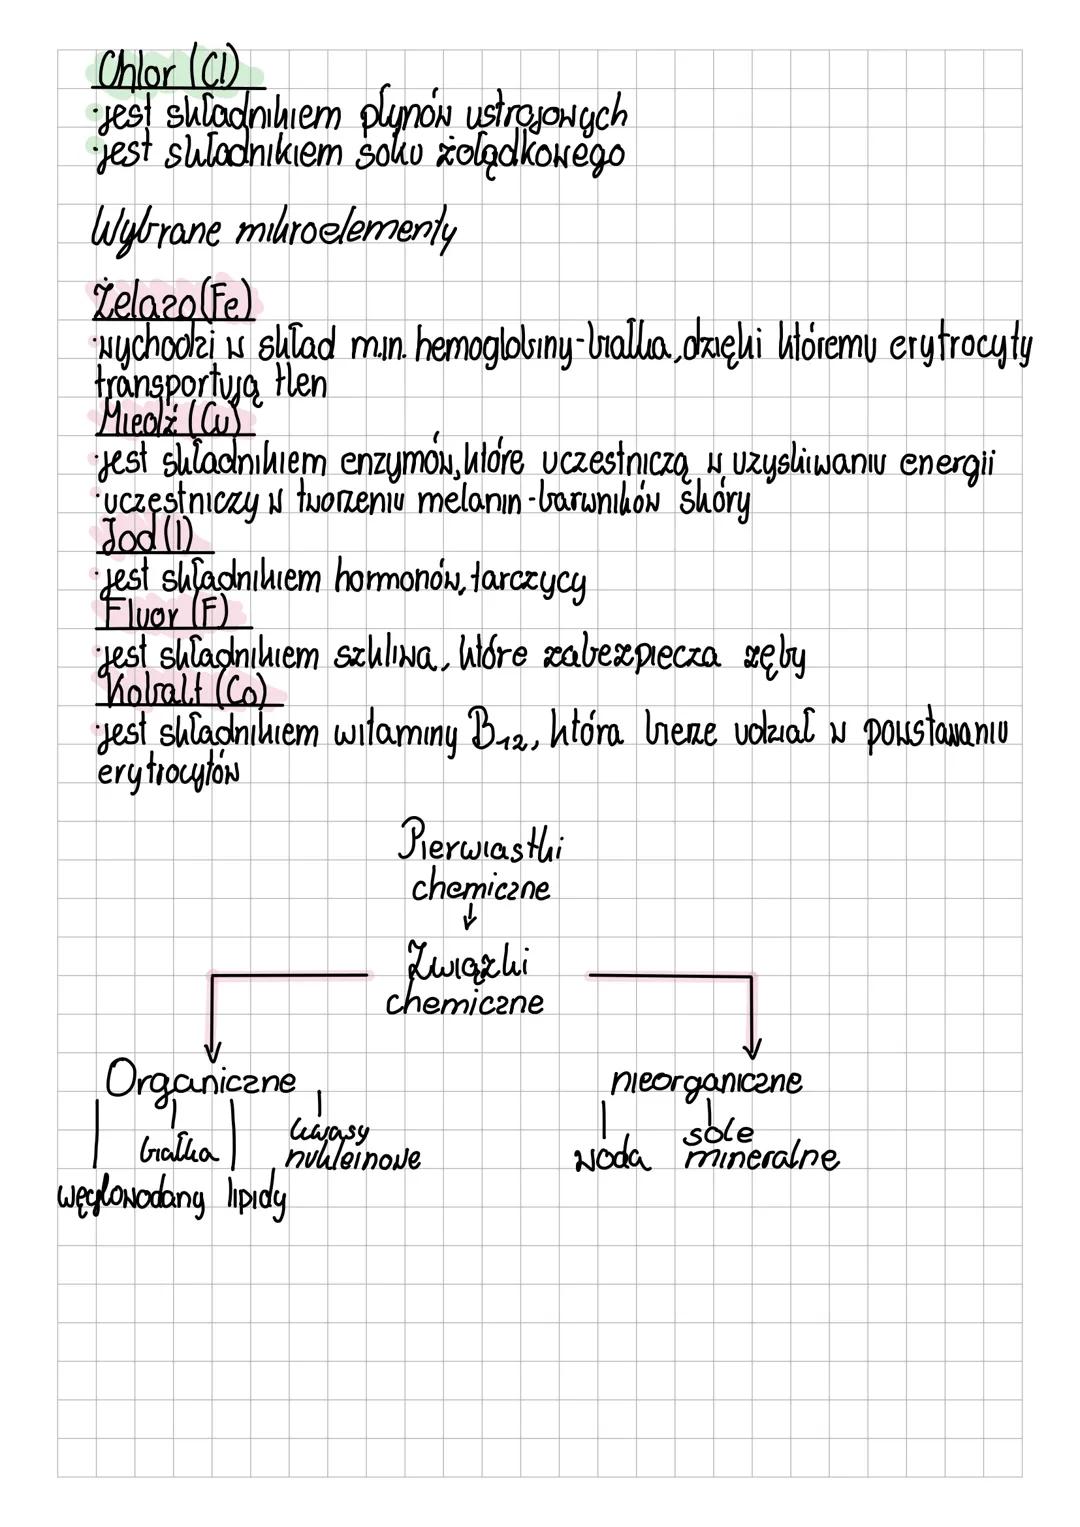 Chlor (Cl)
·jest składnikiem płynów ustrojowych
·jest składnikiem soku żołądkowego
Wybrane mikroelementy
Żelazo (Fe)
·wychodzi w skład m.in. hemoglobiny-białka, dzięki któremu erytrocyty
transportują tlen
Miedź (Cu)
·jest składnikiem enzymów, które uczestniczą w uzyskiwaniu energii
·uczestniczy w tworzeniu melanin-barwników skóry
Jod (I)
·jest składnikiem hormonów, tarczycy
Fluor (F)
·jest składnikiem szkliwa, które zabezpiecza zęby
Kobalt (Co)
·jest składnikiem witaminy B12, która bierze udział w powstawaniu
erytrocytów
Pierwiastki
chemiczne
↓
Związki
chemiczne
Organiczne nieorganiczne
białka kwasy
nukleinowe
woda sole
mineralne
węglowodany lipidy